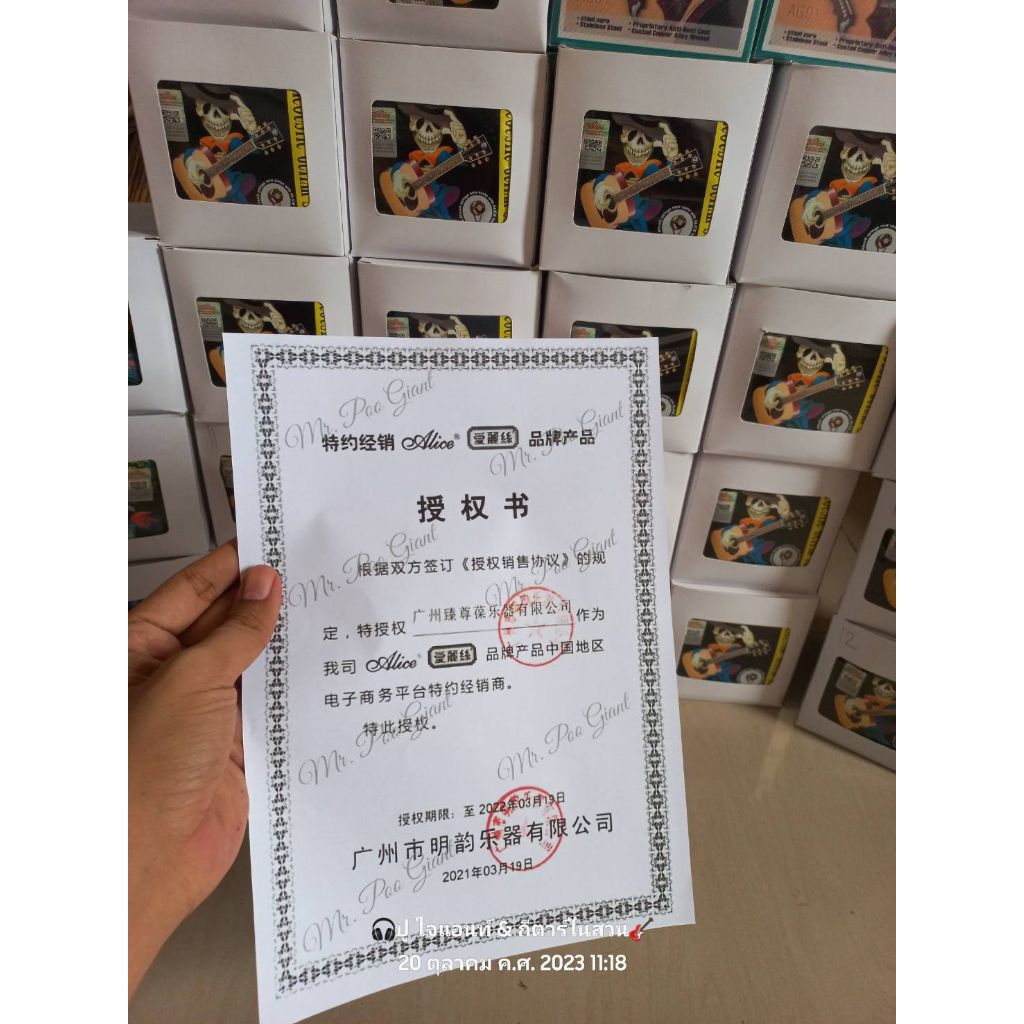 AG01
• steel core
• Stainless Steel
• Proprietary Anti-Rust Coat
• Coated Copper Alloy Wound
AG01
• steel core
• Stainless Steel
• Proprietary Anti-Rust Coat
• Coated Copper Alloy Wound
Mr. Poo Giant
特约经销 Alice® 愛麗絲 品牌产品
Mr. Poo Giant
授权书
Mr. Poo Giant
根据双方签订《授权销售协议》的规
Mr. Poo Giant
定，特授权 广州臻尊葆乐器有限公司 作为
我司 Alice® 愛麗絲 品牌产品中国地区
电子商务平台特约经销商。
特此授权。
Mr. Poo Giant
Mr. Poo Giant
授权期限：至 2022年03月19日
广州市明韵乐器有限公司
2021年03月19日
Mr. Poo Giant
ปู ไจแอนท์ & กีตาร์ในสวน
20 ตุลาคม ค.ศ. 2023 11:18